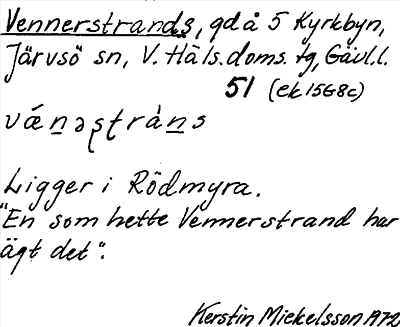 Vennerstrands, gd å 5 Kyrkbyn,
Järvsö sn, V. Häls. doms. tg, Gävl.l.
51 (ek 15G8c)
vǽn̲əʂʈràn̲s
Ligger i Rödmyra.
"En som hette Vennerstrand har
ägt det".
Kerstin Mickelsson 1972